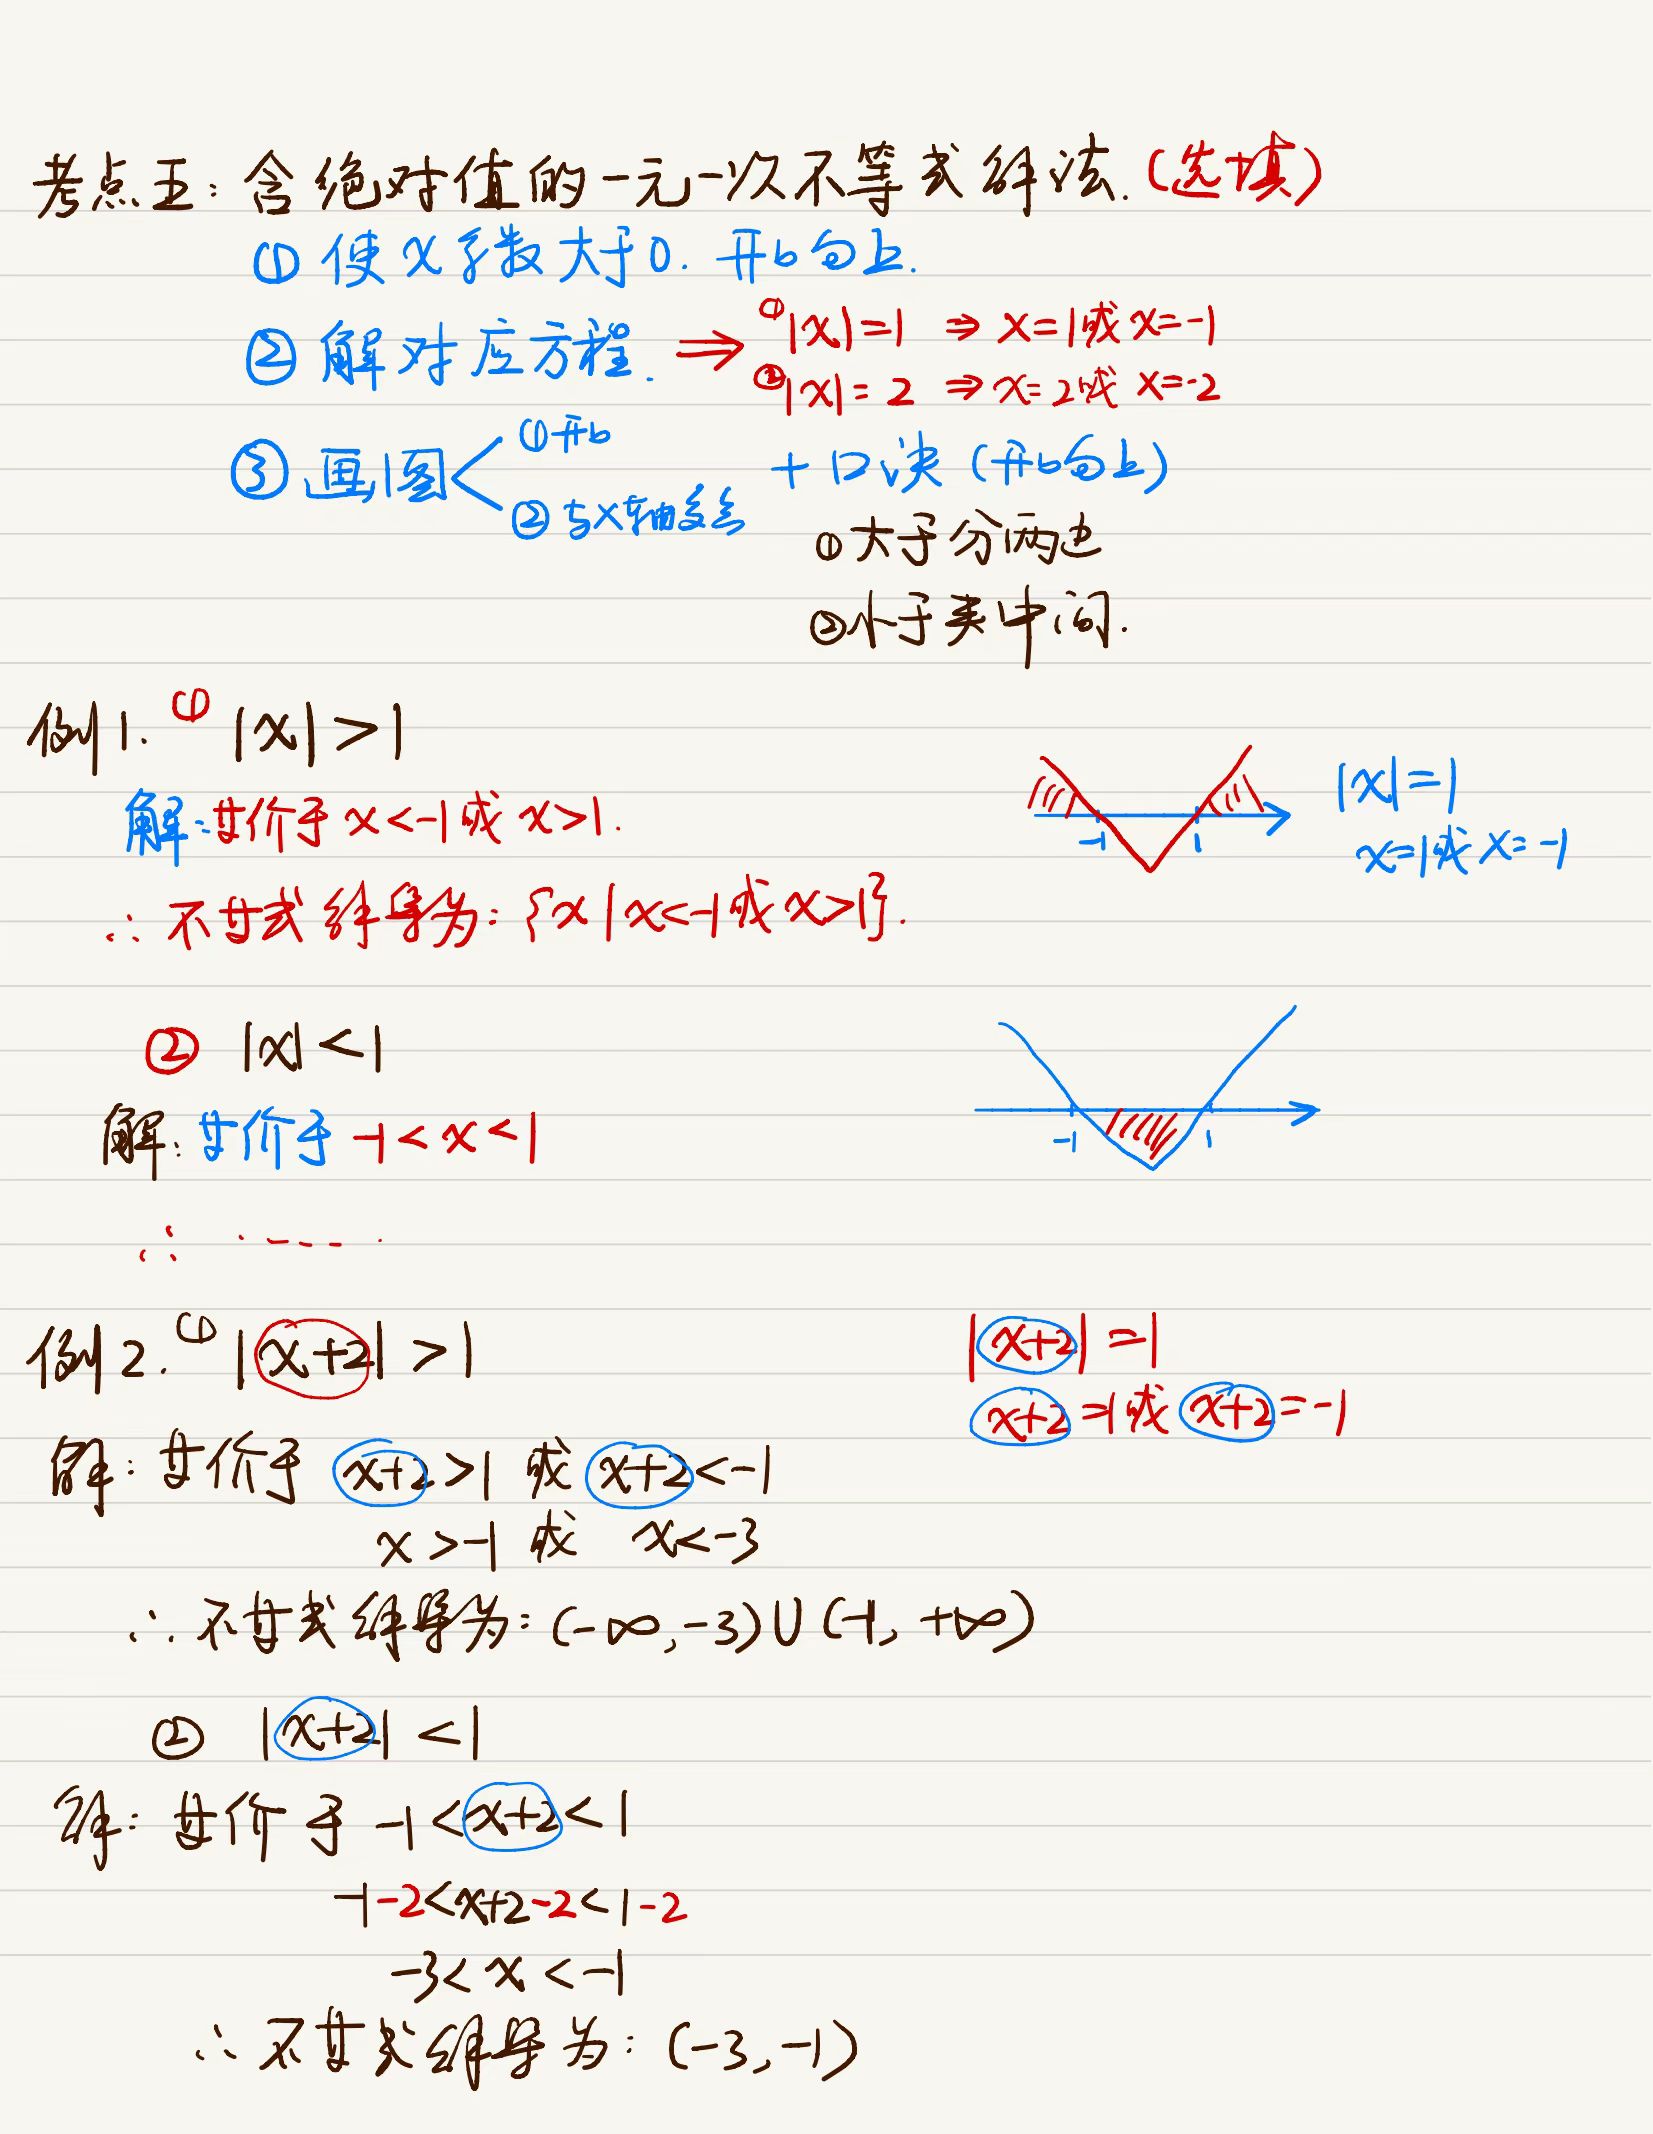 考点五：含绝对值的一元一次不等式解法.(选填)
① 使x系数大于0. 开口向上.
② 解对应方程. ⇒ ①|x|=1 ⇒ x=1或x=-1
②|x|=2 ⇒ x=2或 x=-2
③ 画图 ①开口 ②与x轴交点 + 口诀 (开口向上)
①大于分两边
②小于夹中间.
例1. ① |x|>1
解:等价于x<-1或x>1.
∴不等式解集为:{x|x<-1或x>1}.
-1 1
|x|=1
x=1或x=-1
② |x|<1
解:等价于 -1<x<1
-1 1
∴ ......
例2. ① |x+2|>1
|x+2|=1
x+2=1或x+2=-1
解:等价于 x+2>1 或 x+2<-1
x>-1 或 x<-3
∴不等式解集为:(-∞,-3)∪(-1,+∞)
② |x+2|<1
解:等价于 -1<x+2<1
-1-2<x+2-2<1-2
-3<x<-1
∴不等式解集为:(-3,-1)